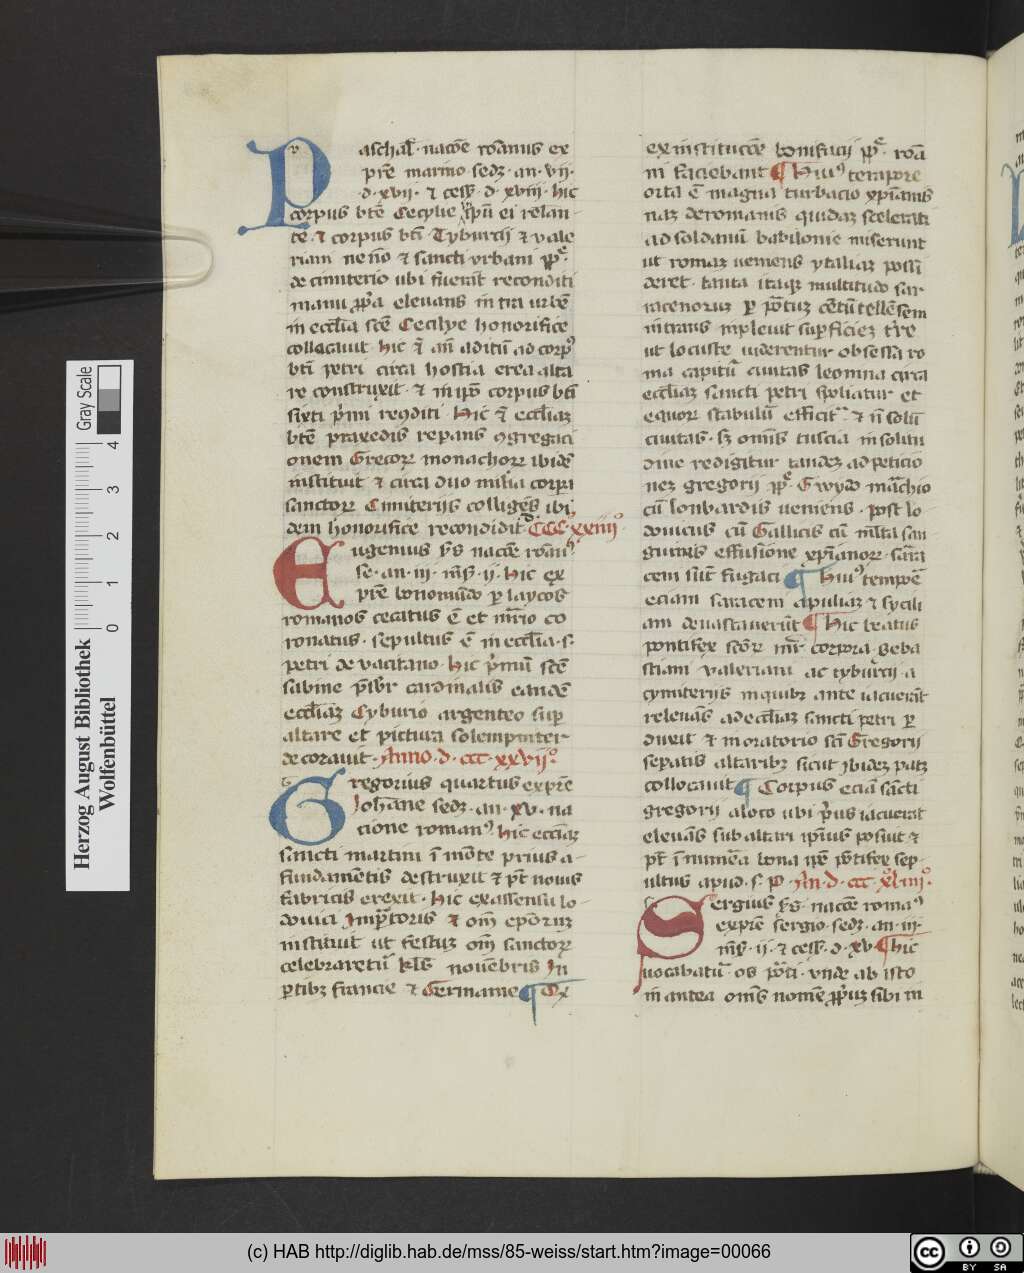 Paschal̅ · nac̅oe ro̅anus ex
pr̅e marino sedȝ · an · vij ·
d · xvij · ⁊ cess̅ · d · xviij · hic
corpus bt̅e Cecylie ip̅ȝ ei relan
te · ⁊ corpus bt̅i Tyburcij ⁊ vale
riani nec̅no ⁊ sancti vrbani pp̅e ·
de cimiterio ubi fuera̅t reconditi
manu pp̅a eleuans in t̅ra urbe̅
in eccl̅ia sc̅e Cecilye honorifice
collacauit · hic e̅ an̅ aditu̅ ad corpꝰ
bt̅i petri circa hostia erea alta
re construxit · ⁊ in ip̅o corpus bt̅i
sixti p̅mi rec̅diti · Hic e̅ eccl̅iaȝ
bt̅e praxedis repans ꝯgregaci
onem Grecoꝝ monachoꝝ ibide̅
instituit ⁊ circa duo milia corpi
sanctoꝝ Cimiterijs collige̅s ibi
dem honorifice recondidit · d CCCꝰ xxiiijꝰ ·
Eugenius s̅s nac̅oe ro̅anꝰ
se · an · iij · me̅s · ij · Hic ex
pr̅e bonomu̅do ꝑ laycos
romanos cecatus e̅ et m̅rio co
ronatus · sepultus e̅ in eccl̅ia · s ·
petri de vaticano · hic p̅mu̅ sc̅e
sabine p̅sbr̅ cardinalis eande̅
eccl̅iaȝ Cyburio argenteo suꝑ
altare et pictura solempniter
decorauit · Anno · d · ccc · xxvijꝰ ·
Gregorius quartus ex pr̅e
Joha̅ne sedȝ · an · xv · na
cione romanꝰ · hic eccl̅iaȝ
sancti martini i̅ mo̅te prius a
fundame̅tis destruxit ⁊ p̅t nouis
fabricis erexit · hic ex assensu lo
douici Imp̅toris ⁊ om̅ ep̅oruȝ
instituit ut festuȝ om̅ sanctoꝝ
celebraretu̅ kl̅s noue̅bris In
ꝑtibȝ francie ⁊ Germanie ¶ Ex
ex institucc̅e bonifacij pp̅e · roa̅
ni faciebant ¶ Huiꝰ tempore
orta e̅ magna turbacio xp̅ianis
naȝ de romanis quidaȝ scelerati
ad soldanu̅ babilonie miserunt
ut romaȝ ueniens ytaliaȝ possi
deret · tanta itaqȝ multitudo sar
racenoruȝ ꝑ po̅tuȝ ce̅tu̅ celle̅sem
intrans inpleuit suꝑficieȝ t̅re
ut locuste uiderentur obsessa ro
ma capitu̅ ciuitas leonina circa
eccl̅iaȝ sancti petri spoliatur et
equoꝝ stabulu̅ efficit̅ · ⁊ n̅ solu̅
ciuitas · sȝ omnis tuscia in solitu
dine redigitur tandeȝ ad peticio
neȝ gregorij pp̅e · Gwydo ma̅chio
cu̅ lonbardis ueniens · post lo
douicus cu̅ Gallicis cu̅ m̅lta san
guinis effusione xp̅ianoꝝ · sa̅ra
ceni su̅t fugati ¶ Huiꝰ tempo̅e
eciam saraceni apuliaȝ ⁊ sycili
am deuastaueru̅t ¶ Hic beatus
pontifex sc̅oꝝ mr̅ corpora Seba
stiani valeriani ac tyburcij a
cymiterijs in quibȝ ante iacuera̅t
releuans ad eccl̅iaȝ sancti petri ꝑ
duxit ⁊ in oratorio sc̅i Gregorij
sepatis altaribȝ sicut ibideȝ patȝ
collocauit ¶ Corpus ecia̅ sa̅cti
gregorij a loco ubi p̅us iacuerat
eleua̅s sub altari ip̅ius posuit ⁊
p̅t i̅numera bona ip̅e po̅tifex sep
ultus apud · s · p · An̅ · d · ccc · xl̅iiijꝰ ·
Sergius s̅s · nac̅oe romaꝰ
ex pr̅e sergio · sedȝ · an · iij ·
me̅s · ij · ⁊ cess̅ · d · xv · ¶ hic
uocabatu̅ · os porci · vnde ab isto
in antea omnis nome̅ pp̅iuȝ sibi in
Herzog August Bibliothek
Wolfenbüttel
0 1 2 3 4
Gray Scale
(c) HAB http://diglib.hab.de/mss/85-weiss/start.htm?image=00066
cc BY SA